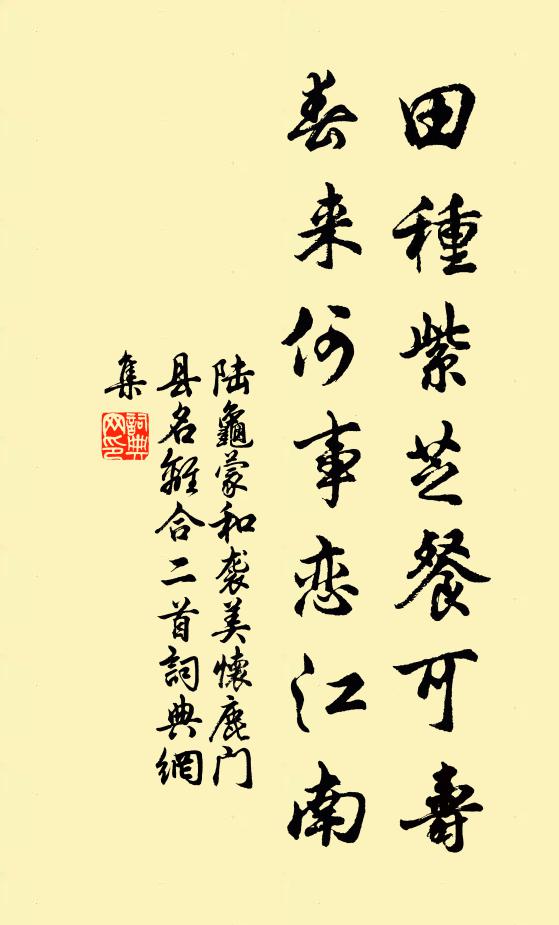 田種紫芝餐可壽
春来何事恋江南
陆龜蒙和袭美懷鹿门
县名離合二首詞典網
集
詞典网印